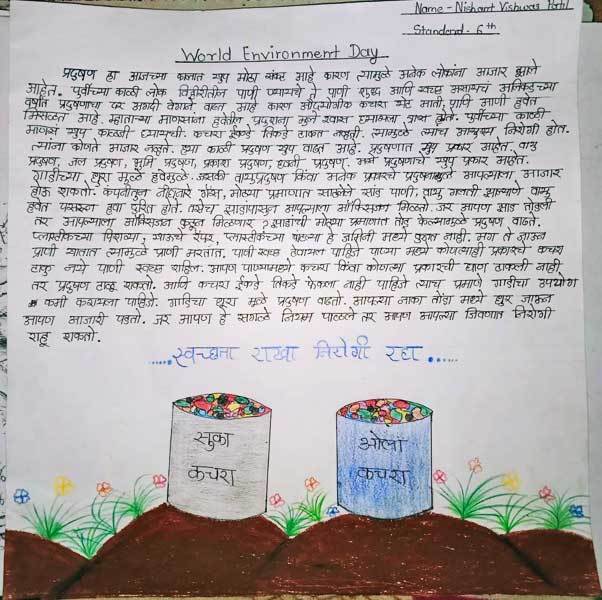 Name - Nishant Vishwas Patil
Standard - 6th
World Environment Day
प्रदुषण हा आजच्या काळात खुप मोठा संकट आहे कारण त्यामुळे अनेक लोकांना आजार झाले
आहेत. पुर्वीच्या काळी लोक विहीरीतील पाणी प्यायचे ते पाणी शुद्ध आणि स्वच्छ असायचं
वर्षात प्रदुषणाचा दर अगदी वेगाने वाढत आहे कारण औद्योगीक कचरा थेट माती, पाणि आणी हवेत
मिसळत आहे. म्हाताऱ्या माणसांना हवेतील प्रदुषणा मुळे श्वास घेण्याला त्रास होतो. पुर्वीच्या काळी
माणसे खुप काळजी घ्यायची. कचरा ईकडे तिकडे टाकत नव्हती. त्यामुळे त्यांचे आयुष्य निरोगी होत.
त्यांना कोणते आजार नव्हते. ह्या काळी प्रदुषण खुप वाढत आहे. प्रदुषणात खुप प्रकार आहेत. वायु
प्रदुषण, जल प्रदुषण, भुमि प्रदुषण, प्रकाश प्रदुषण, ध्वनी प्रदुषण. असे प्रदुषणाचे खुप प्रकार आहेत.
गाडीच्या धुरा मुळे हवेमुळे वायुप्रदुषण किंवा अनेक प्रकारचे प्रदुषनामुळे आपल्याला आजार
होऊ शकतो. कंपनीतुन गॅस, मोठ्या प्रमाणात साचलेले सांड पाणी, वायु गळती झाल्याने वायु
हवेत पसरून हवा दुषित होते. तसेच झाडांपासुन आपल्याला ऑक्सिजन मिळतो. जर आपण झाड तोडली
तर आपल्याला ऑक्सिजन कुठून मिळणार? झाडांची मोठ्या प्रमाणात तोड केल्यामुळे प्रदुषण वाढते.
प्लास्टीकच्या पिशव्या, खाऊचे रॅपर, प्लास्टीकच्या बाटल्या हे जमिनी मध्ये कुजत नाही. मग ते जाऊन
प्राणी खातात त्यामुळे प्राणी मरतात. पाणी स्वच्छ ठेवायला पाहिजे पाण्या मध्ये कोणत्याही प्रकारचे कचरा
टाकु नये पाणी स्वच्छ राहिल. आपण पाण्यामध्ये कचरा किंवा कोणत्या प्रकारची घाण टाकली नाही
तर प्रदुषण टाळु शकतो. आणि कचरा ईकडे तिकडे फेकला नाही पाहिजे त्याच प्रमाणे गाडीचा उपयोग
कमी करायला पाहिजे. गाडीचा धुरा मुळे प्रदुषण वाढतो. आपल्या नाका तोंडा मध्ये धुर जाऊन
आपण आजारी पडतो. जर आपण हे सगळे नियम पाळले तर आपण आपल्या जिवणात निरोगी
राहू शकतो.
......स्वच्छता राखा निरोगी रहा......
सुका
कचरा
ओला
कचरा